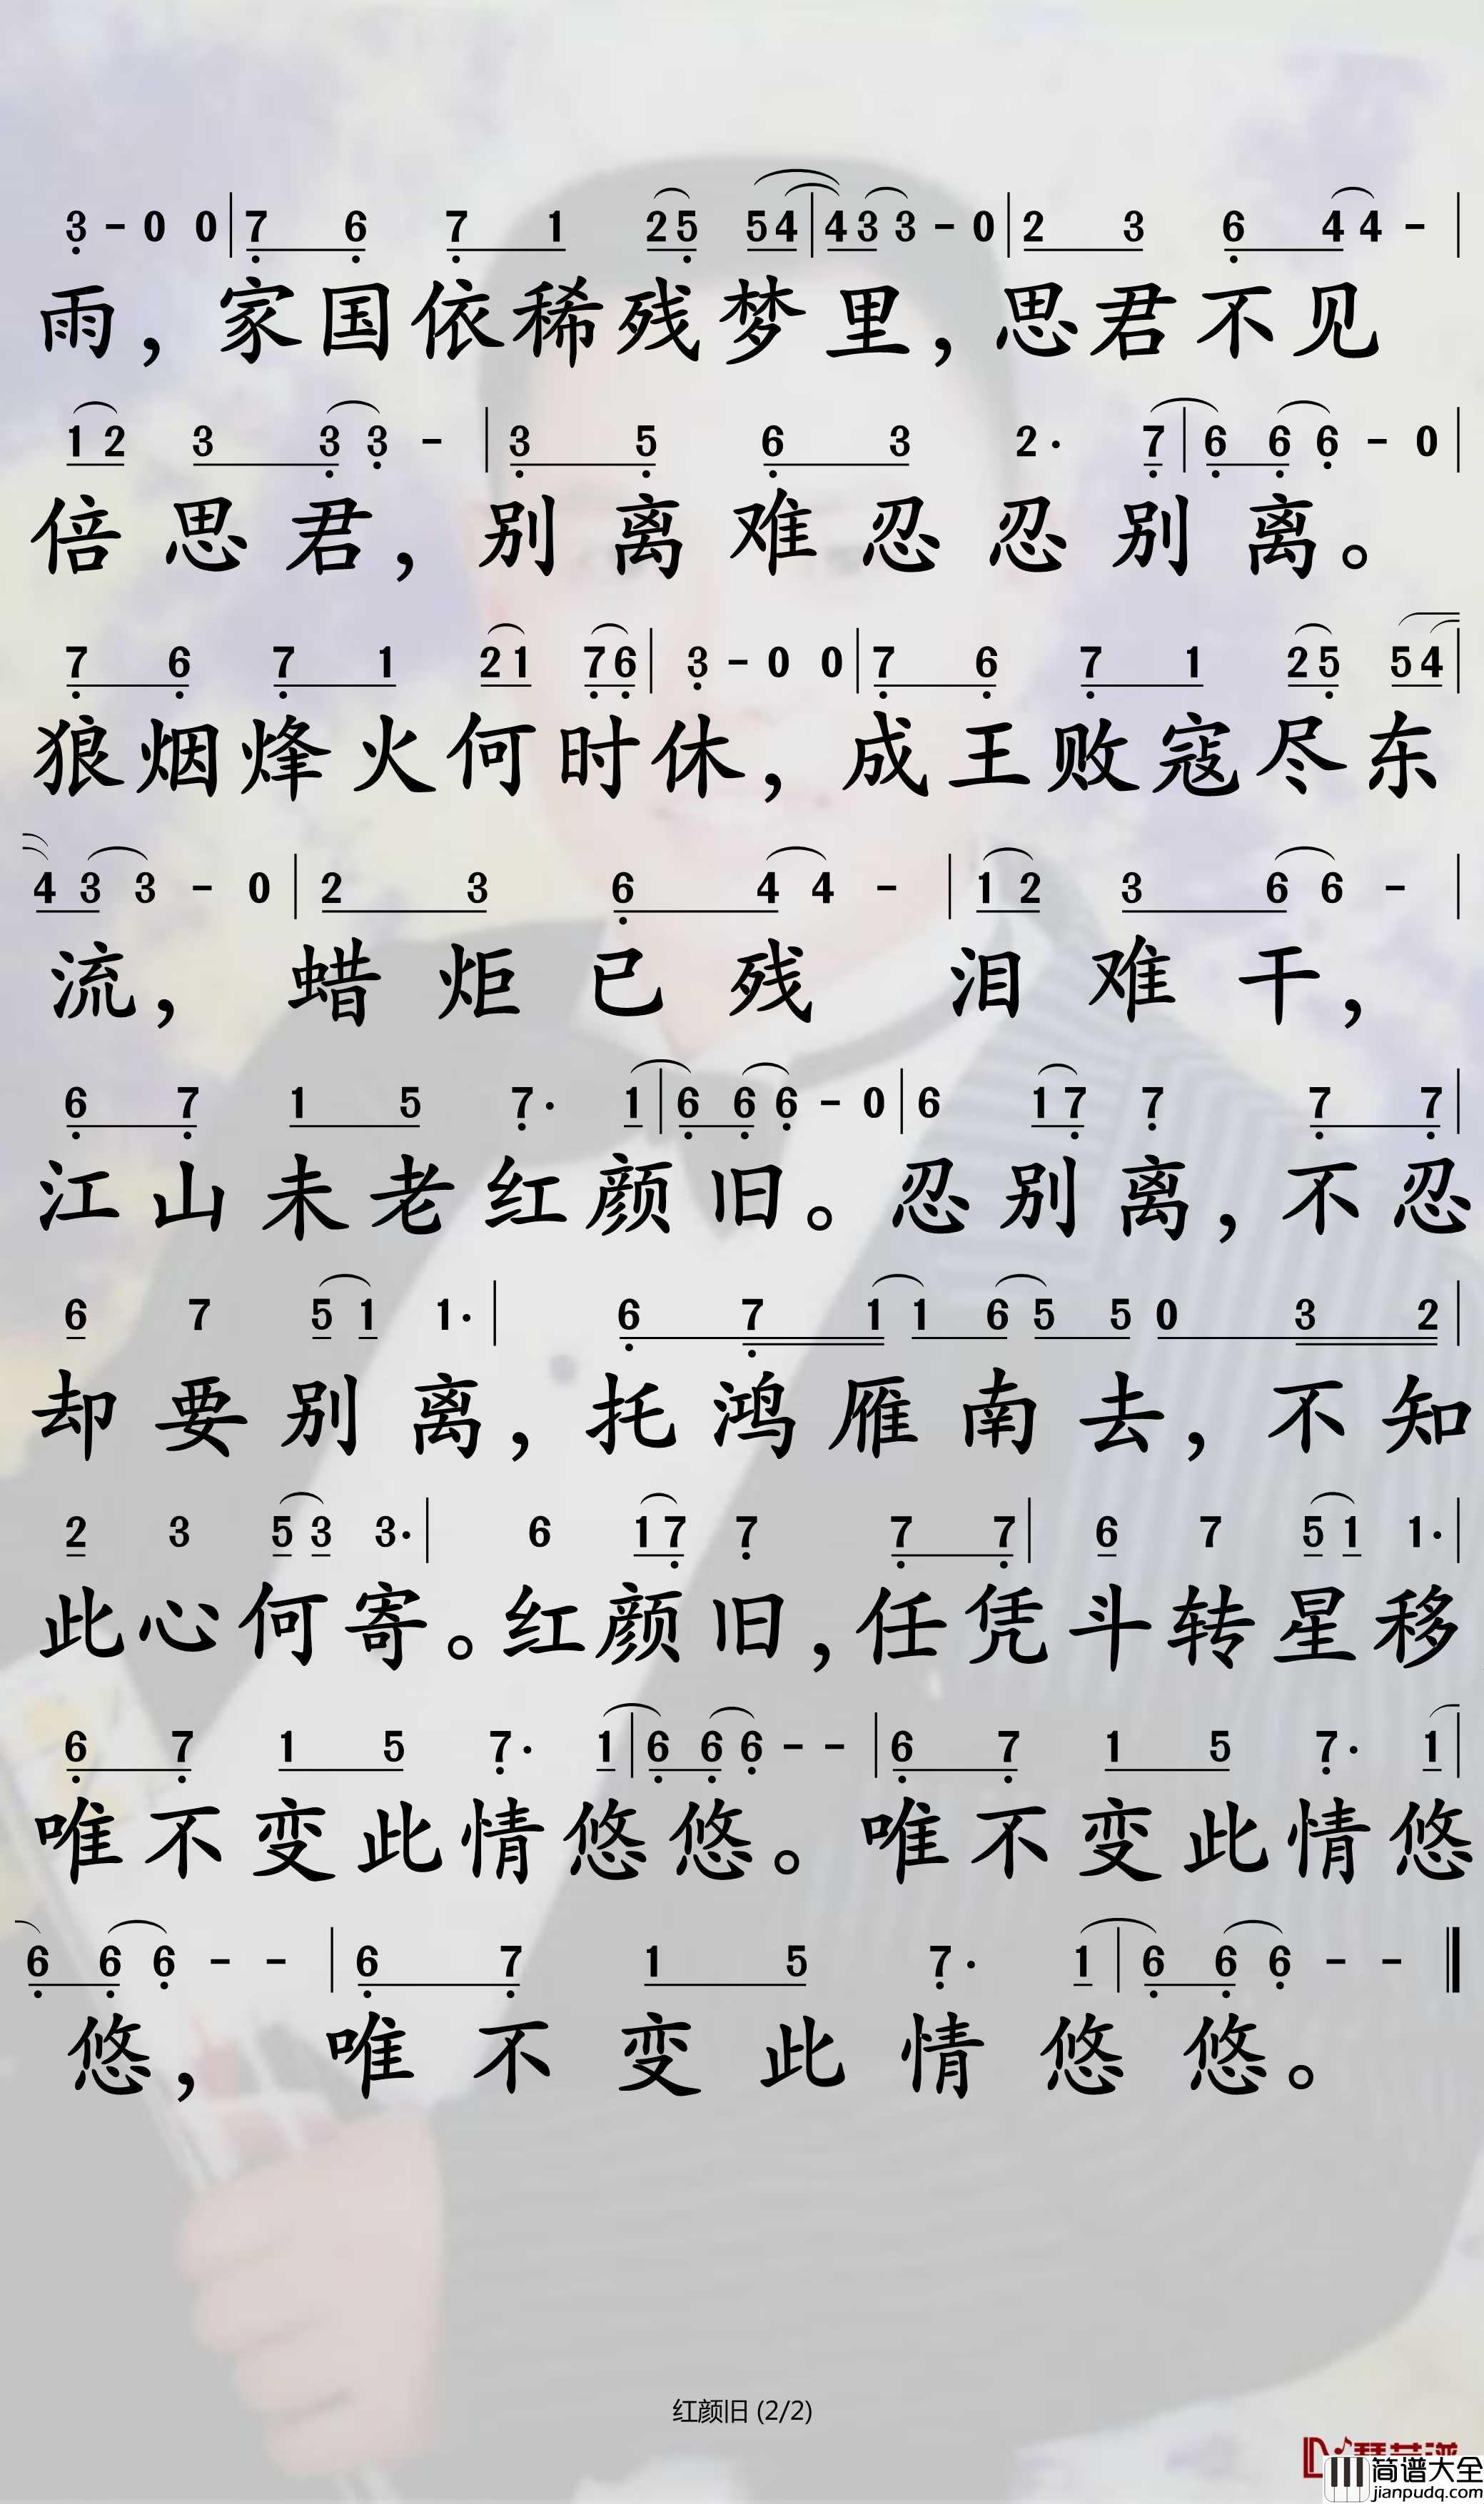 3 - 0 0 | 7 6 7 1 2 5 5 4 | 4 3 3 - 0 | 2 3 6 4 4 - |
雨，家国依稀残梦里，思君不见
1 2 3 3 3 - | 3 5 6 3 2· 7 | 6 6 6 - 0 |
倍思君，别离难忍忍别离。
7 6 7 1 2 1 7 6 | 3 - 0 0 | 7 6 7 1 2 5 5 4 |
狼烟烽火何时休，成王败寇尽东
4 3 3 - 0 | 2 3 6 4 4 - | 1 2 3 6 6 - |
流，蜡炬已残泪难干，
6 7 1 5 7· 1 | 6 6 6 - 0 | 6 1 7 7 7 7 |
江山未老红颜旧。忍别离，不忍
6 7 5 1 1· | 6 7 1 1 6 5 5 0 3 2 |
却要别离，托鸿雁南去，不知
2 3 5 3 3· | 6 1 7 7 7 7 | 6 7 5 1 1· |
此心何寄。红颜旧，任凭斗转星移
6 7 1 5 7· 1 | 6 6 6 - - | 6 7 1 5 7· 1 |
唯不变此情悠悠。唯不变此情悠
6 6 6 - - | 6 7 1 5 7· 1 | 6 6 6 - - ‖
悠，唯不变此情悠悠。
红颜旧 (2/2)
简谱大全
jianpudq.com